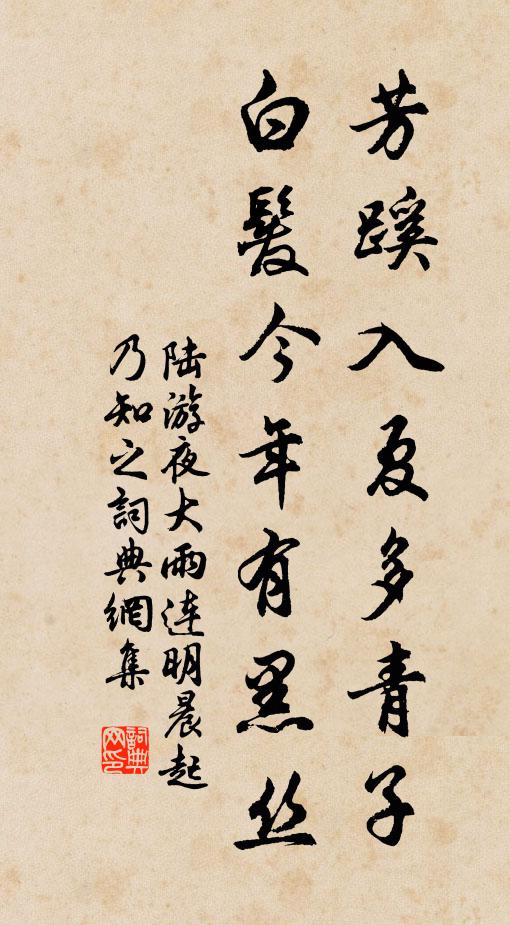 芳蹊入夏多青子
白髮今年有黑丝
陆游夜大雨连明晨起
乃知之詞典網集
詞典
网印